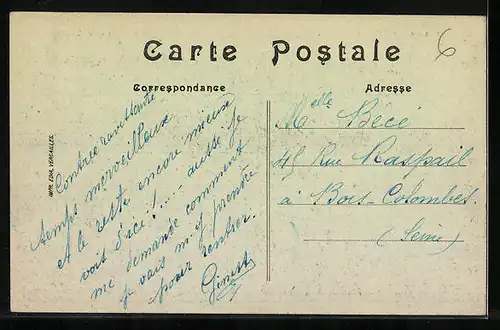 Carte Postale
6
Correspondance
Adresse
Contrée ravissante
temps merveilleux
et le reste encore mieux
voit d'ici!..... aussi je
me demande comment
je vais m'y prendre
pour rentrer.
Ginette
Melle Bécé
45 Rue Raspail
à Bois-Colombes
(Seine)
IMPR. EDIA, VERSAILLES